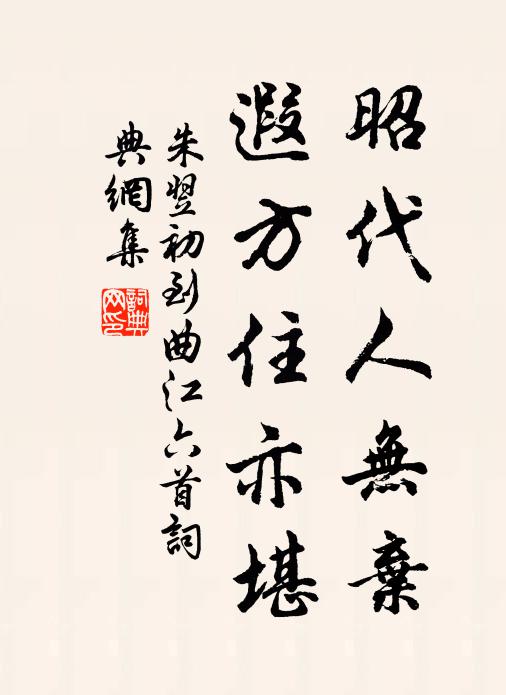 昭代人無棄
遐方住亦堪
朱翌初到曲江六首詞
典網集
詞典網印